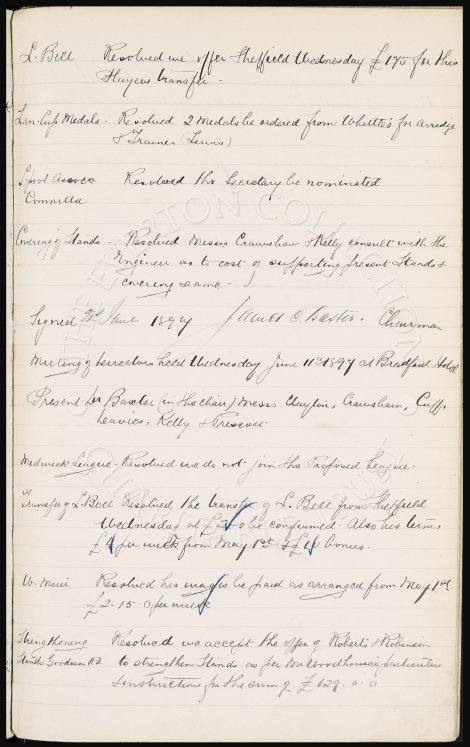 L. Bell Resolved we offer Sheffield Wednesday £175 for this
Players transfer.
Lan. Cup Medals. Resolved 2 Medals be ordered from Whittle's for Arridge
& Trainer Lewis)
L'pool Assocn Resolved the Secretary be nominated
Committee
Covering of Stands. Resolved Messrs Crawshaw & Kelly consult with the
Engineer as to cost of supporting present Stands &
covering same.
Signed 2nd June 1897 James C. Baxter. Chairman
Meeting of Directors held Wednesday June 11th 1897 at Bradford Hotel
Present Dr Baxter (in the chair) Messrs Clayton, Crawshaw, Cuff,
Leavies, Kelly & Prescott
Midweek League. Resolved we do not join the Proposed League.
Transfer of L. Bell Resolved the transfer of L. Bell from Sheffield
Wednesday at £200 be confirmed. Also his terms
£4 per week from May 1st & £10 bonus.
W. Muir Resolved his wages be paid as arranged from May 1st
£2-15-0 per week
Strengthening Resolved we accept the offer of Roberts & Robinson
Stands Goodison Rd to strengthen Stands as per Mr Woodhouse's particulars
& instructions for the sum of £129. 0. 0
THE EVERTON COLLECTION